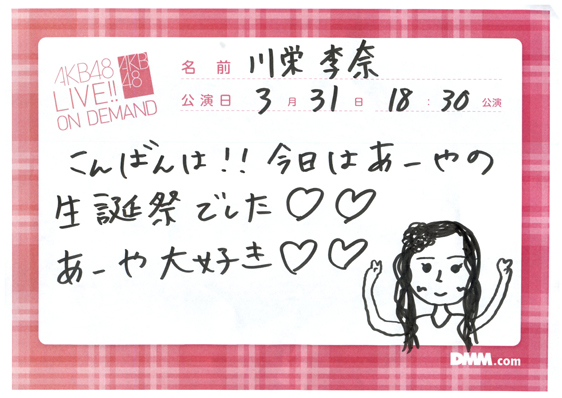 AKB48
LIVE!!
ON DEMAND
AKB
48
名前 川栄 李奈
公演日 3月31日 18:30公演
こんばんは!! 今日はあーやの
生誕祭でした♡♡
あーや大好き♡♡
DMM.com